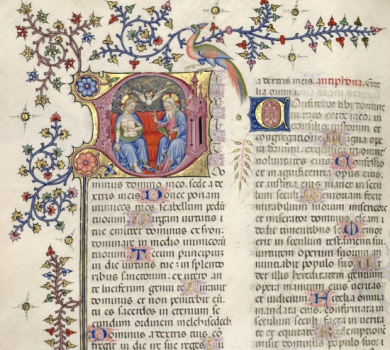 D
minus domino meo. sede a
dextris meis. Donec ponam
inimicos tuos. scabellum pedu
tuorum. Virgam virtutis t
ue emittet dominus ex syon.
dominare in medio inimicorū
tuorum. Tecum principium
in die virtutis tue in splendo
ribus sanctorum. ex utero an
te luciferum genui te. Iuravit
dominus et non penitebit eū.
tu es sacerdos in eternum se
cundum ordinem melchisedech.
Dominus a dextris tuis. co
fregit in die ire sue reges
a dextris meis. antiphona. Fide
lia omnia.
Confitebor tibi domine
in toto corde meo. in
consilio iustorum et
congregatione. Magna opera
voluntates eius. Confessio
et magnificentia opus eius. et
iusticia eius manet in seculū
seculi. Memoriam fecit mi
rabilium suorum misericors
et miserator dominus. escam de
dit timentibus se. Memor
erit in seculum testamenti sui.
virtutem operum suorum an
nuntiabit populo suo. Ut
det illis hereditatem gentium
opera manuum eius veritas
et iudicium. Fidelia omnia
mandata eius. confirmata in
seculum seculi. facta in veritate
et equitate. Redemptionem